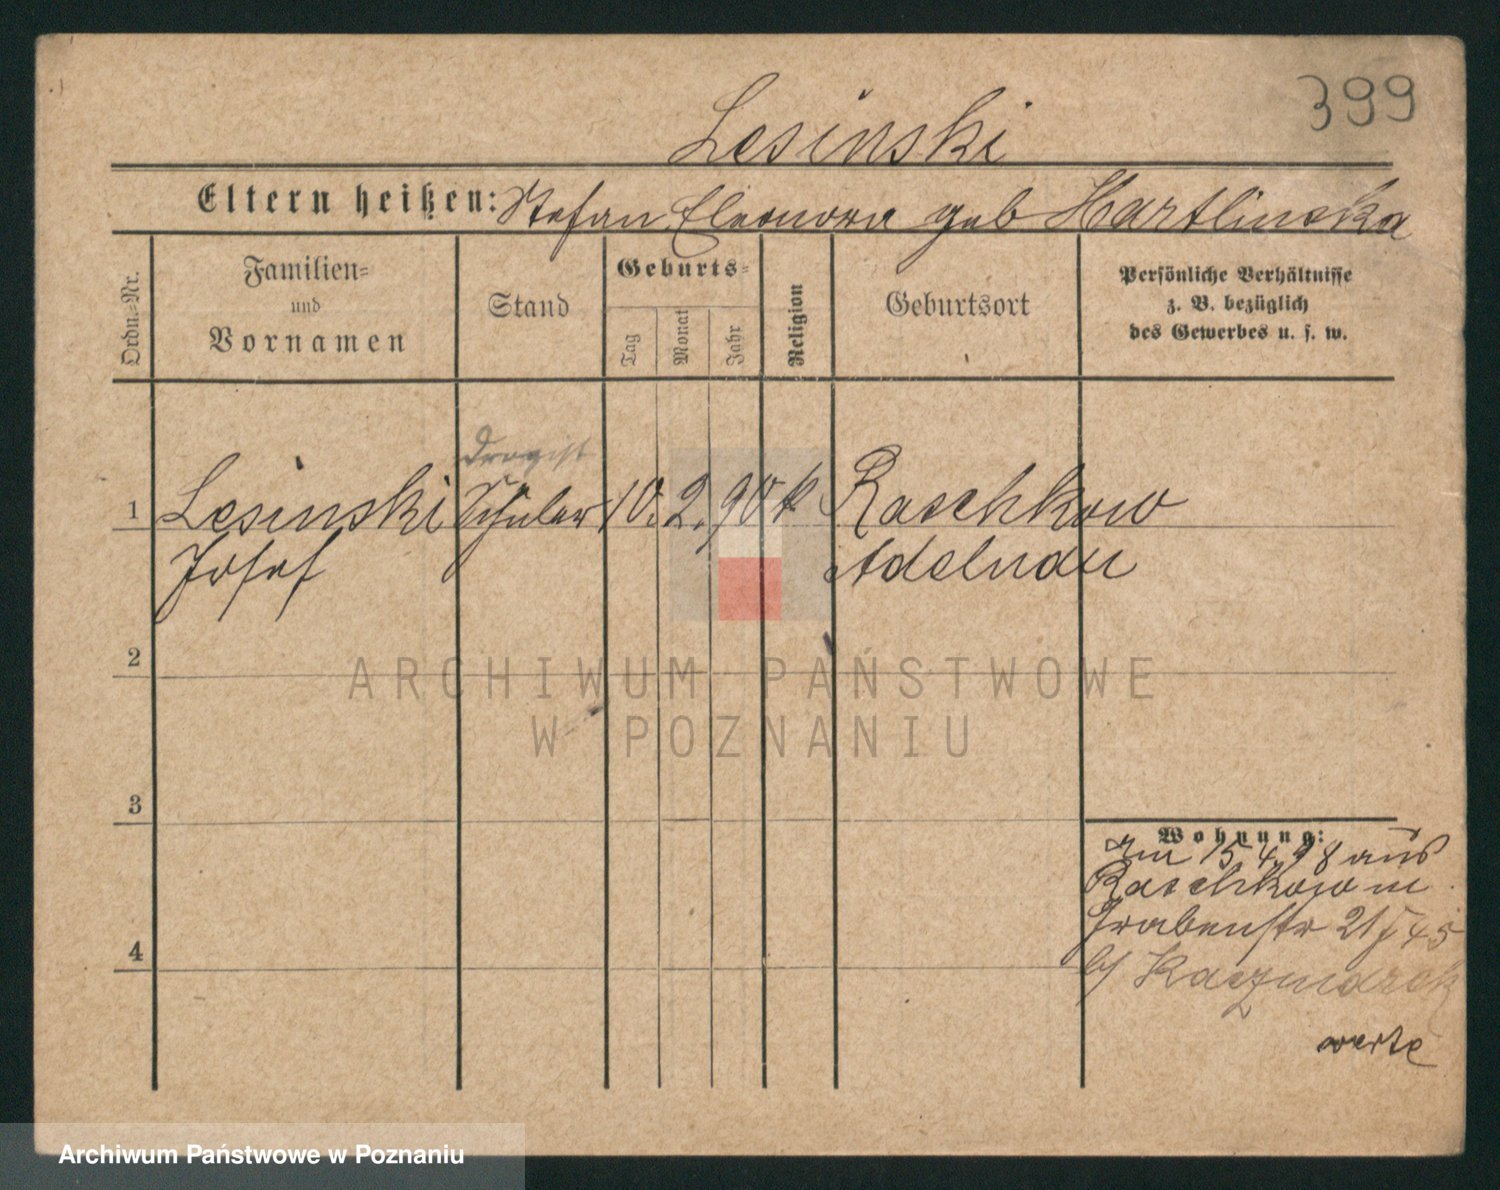 399
Lesinski
Eltern heißen: Stefan Eleonora geb Hartlinska
Ordn.=Nr.
Familien=
und
Vornamen
Stand
Geburts=
Tag
Monat
Jahr
Religion
Geburtsort
Persönliche Verhältnisse
z. B. bezüglich
des Gewerbes u. s. w.
Drogist
1 Lesinski Schüler 10. 2. 90 k Raschkow
Josef Adelnau
2
ARCHIWUM PAŃSTWOWE
W POZNANIU
3
Wohnung:
am 15 4 98 aus
Raschkow n
Grabenstr 21 45
b/ Kaczmarek
4
Archiwum Państwowe w Poznaniu